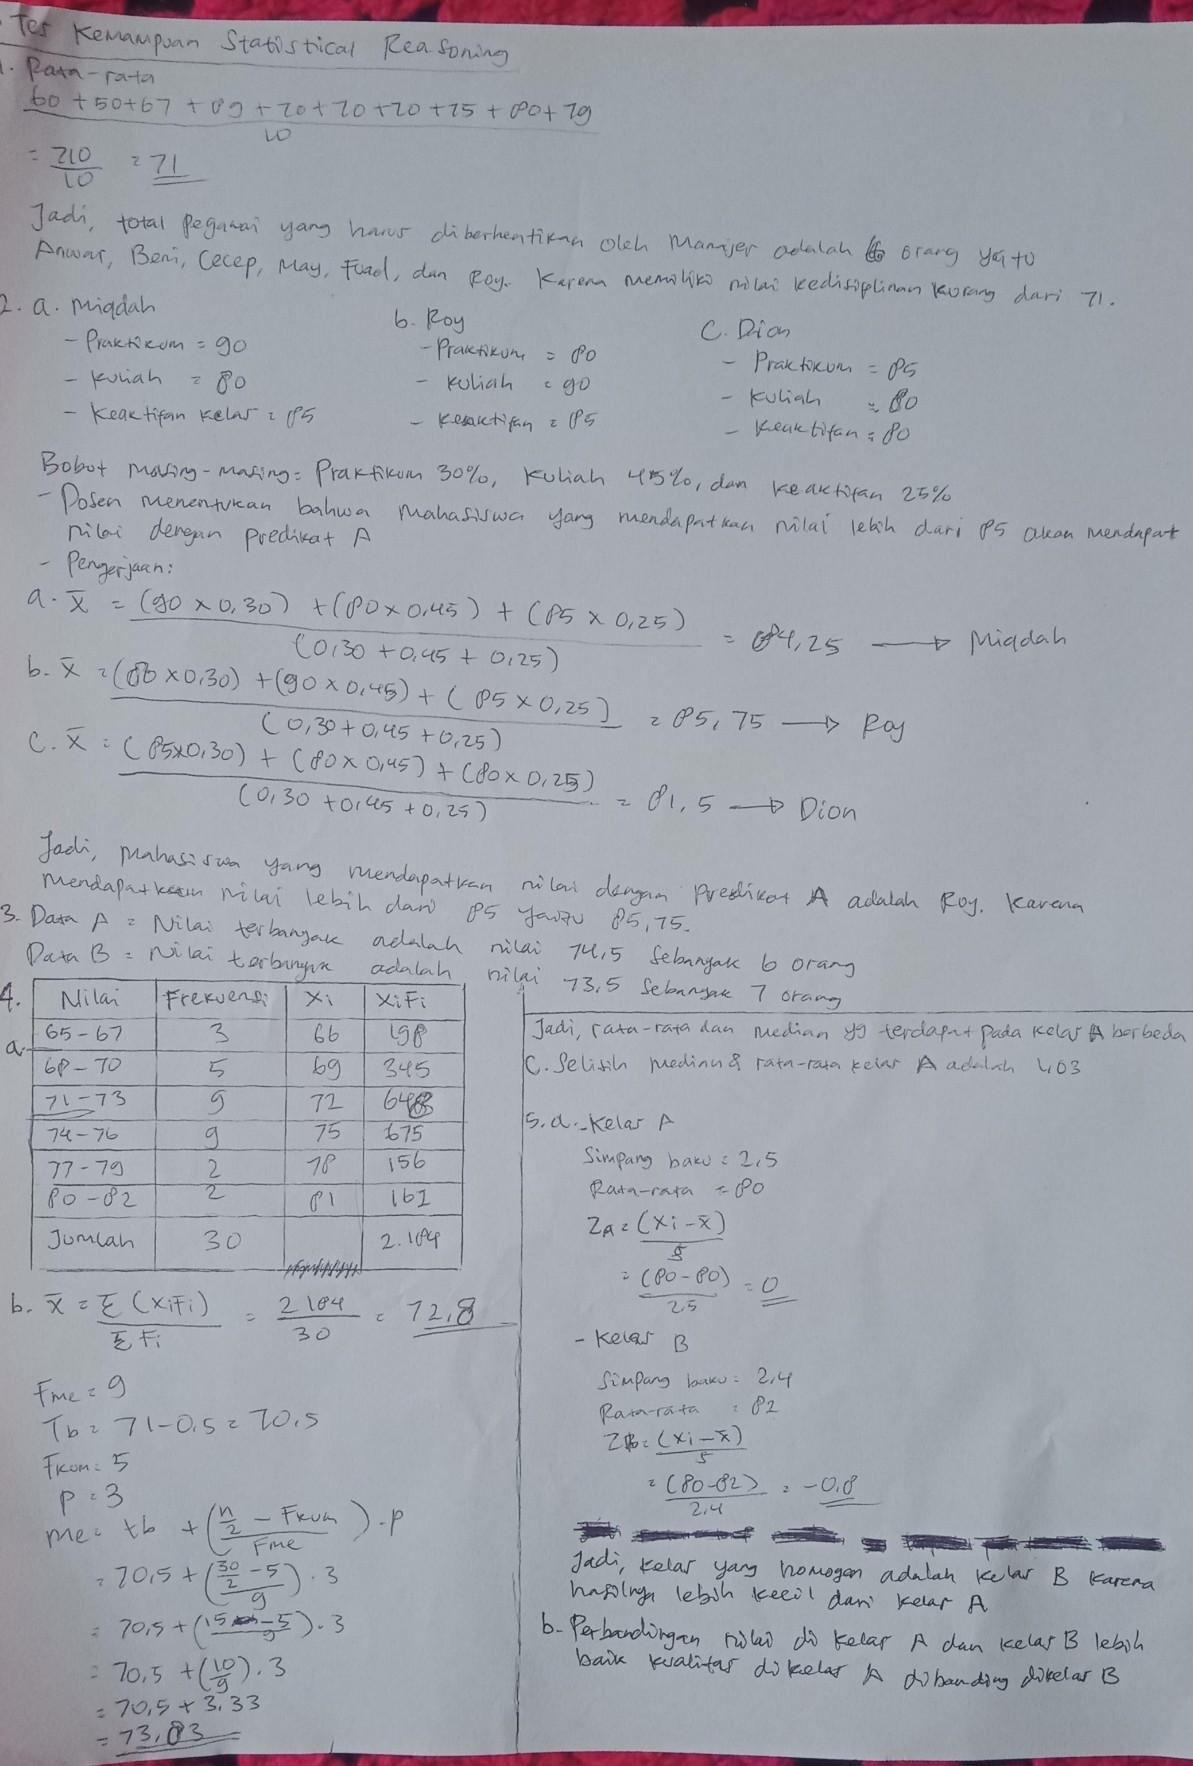 Tes Kemampuan Statistical Reasoning
1. Rata-rata
60 + 50 + 67 + 89 + 70 + 70 + 70 + 75 + 80 + 79
10
= 710/10 = 71
Jadi, total pegawai yang harus diberhentikan oleh Manajer adalah 6 orang yaitu
Anwar, Beni, Cecep, May, Fuad, dan Roy. Karena memiliki nilai kedisiplinan kurang dari 71.
2. a. Miqdah
- Praktikum = 90
- Kuliah = 80
- Keaktifan kelas = 85
b. Roy
- Praktikum = 80
- Kuliah = 90
- Keaktifan = 85
C. Dion
- Praktikum = 85
- Kuliah = 80
- Keaktifan = 80
Bobot masing-masing = Praktikum 30%, Kuliah 45%, dan keaktifan 25%
- Dosen menentukan bahwa mahasiswa yang mendapatkan nilai lebih dari 85 akan mendapat
nilai dengan predikat A
- Pengerjaan:
a. x̄ = (90 x 0,30) + (80 x 0,45) + (85 x 0,25) / (0,30 + 0,45 + 0,25) = 84,25 → Miqdah
b. x̄ = (80 x 0,30) + (90 x 0,45) + (85 x 0,25) / (0,30 + 0,45 + 0,25) = 85,75 → Roy
C. x̄ = (85x0,30) + (80 x 0,45) + (80 x 0,25) / (0,30 + 0,45 + 0,25) = 81,5 → Dion
Jadi, mahasiswa yang mendapatkan nilai dengan predikat A adalah Roy. Karena
mendapatkan nilai lebih dari 85 yaitu 85,75.
3. Data A = Nilai terbanyak adalah nilai 74,5 sebanyak 6 orang
Data B = Nilai terbanyak adalah nilai 73,5 sebanyak 7 orang
4. a.
Nilai Frekuensi Xi XiFi
65-67 3 66 198
68-70 5 69 345
71-73 9 72 648
74-76 9 75 675
77-79 2 78 156
80-82 2 81 162
Jumlah 30 2.184
b. x̄ = Σ(XiFi) / ΣFi = 2184/30 = 72,8
Fme = 9
Tb = 71-0,5 = 70,5
Fkum = 5
P = 3
Me = tb + (n/2 - Fkum / Fme) . P
= 70,5 + (30/2 - 5 / 9) . 3
= 70,5 + (15 - 5 / 9) . 3
= 70,5 + (10/9) . 3
= 70,5 + 3,33
= 73,83
Jadi, rata-rata dan median yg terdapat pada kelas A berbeda
C. Selisih median & rata-rata kelas A adalah 1,03
5. a. - Kelas A
Simpang baku = 2,5
Rata-rata = 80
ZA = (xi - x̄) / s
= (80-80) / 2,5 = 0
- Kelas B
Simpang baku = 2,4
Rata-rata = 82
ZB = (xi - x̄) / s
= (80-82) / 2,4 = -0,8
Jadi, kelas yang homogen adalah kelas B karena
hasilnya lebih kecil dari kelas A
b. Perbandingan nilai di kelas A dan kelas B lebih
baik kualitas di kelas A dibanding dikelas B